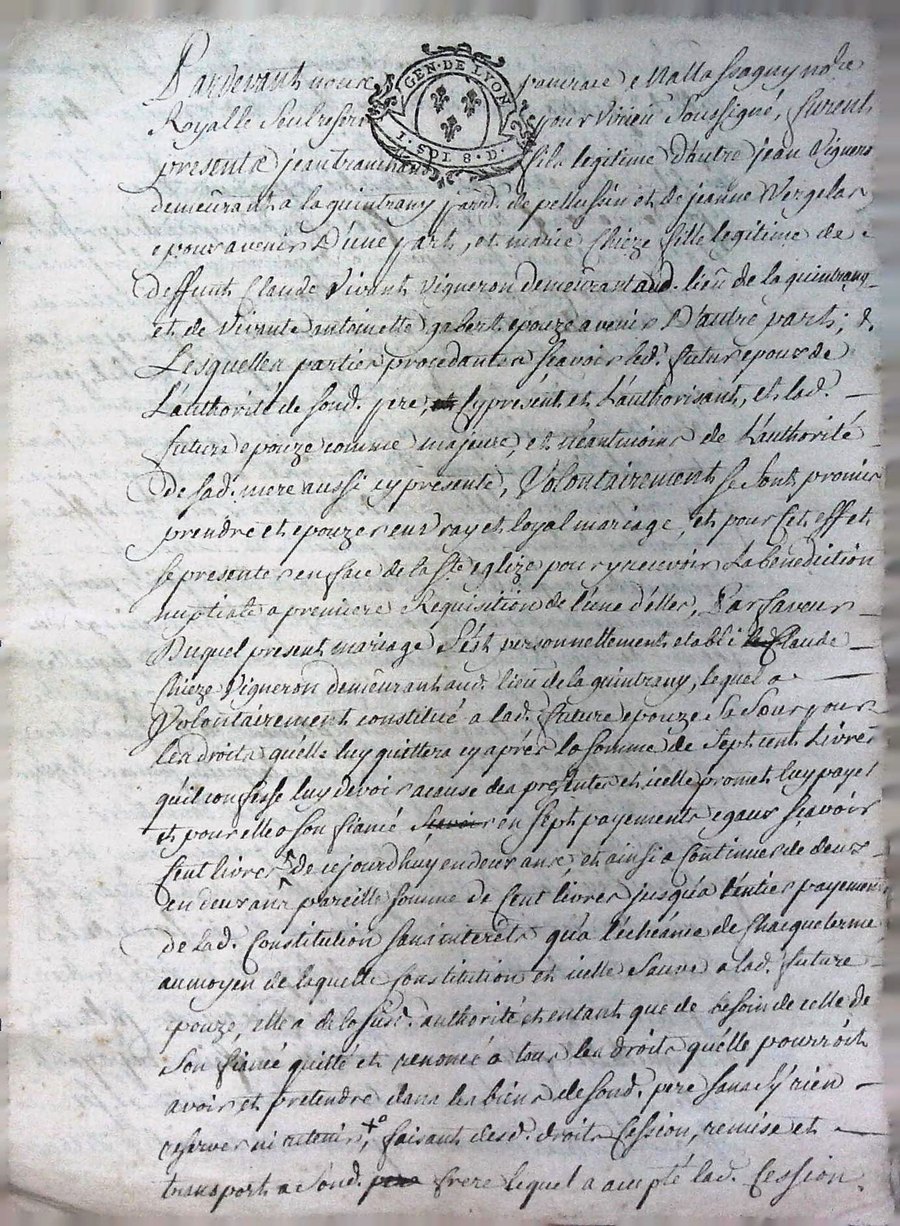 GEN. DE LYON
1. SOL 8. D.
Pardevant nous not.re
Royalle Soussigné, furent
presents jean fils legitime d'autre jean Vigneron
demeurant a la quintrany parr. de pellussin et de jeanne Vergelas
epoux avenir D'une part, et marie Chieze fille legitime de
deffunt Claude Vivant Vigneron demeurant aud. lieu de la quintrany
et de Vivante antoinette gabert epouze avenir D'autre part; d.
Lesquelles parties procedantes scavoir led. futur epoux de
L'authorité de sond. pere cy présent et L'authorisant, et lad.
future epouze comme majeure, et néantmoins de L'authorité
de sad. mere aussi cy présente, Volontairement se sont promis
prendre et epouzer en vray et loyal mariage, et pour cet effet
se presenter en face de la Ste eglize pour y recevoir La bénédiction
nuptiale a premiere Requisition de l'une d'elles, Par faveur
Duquel present mariage s'est personnellement etabli Claude
Chieze Vigneron demeurant aud. lieu de la quintrany, lequel a
Volontairement constitué a lad. future epouze sa Sour pour
les droits qu'elle luy quittera cy après la somme de Sept cent Livres
qu'il confesse luy devoir a cause des presentes et icelle promet luy payer
et pour elle a son fiancé en sept payements egaux scavoir
Cent livres de cejourdhuy en deux ans, et ainsi a Continuer de deux
en deux ans pareille somme de Cent livres jusqu'a l'entier payement
de lad. Constitution sans interets qu'a l'échéance de Chacque terme
au moyen de laquelle Constitution et icelle Sauve a lad. future
epouze, elle a de la susd. authorité et entant que de besoin de celle de
Son fiancé quitté et renoncé a tous les droits qu'elle pourroit
avoir et pretendre dans les biens de sond. pere sans s'y rien
reserver ni retenir, faisant desd. droits Cession, remise et
transport a Sond. frere lequel a accepté lad. Cession